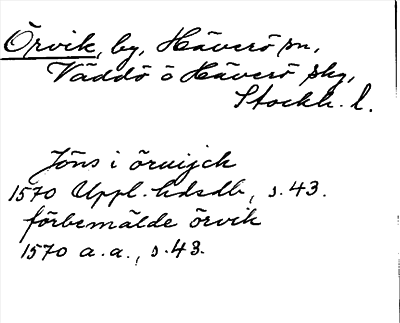 Örvik, by, Häverö sn,
Väddö o Häverö skg,
Stockh. l.
Jöns i öruijck
1570 Uppl. hdsdb, s. 43.
förbemälde örvik
1570 a. a., s. 43.